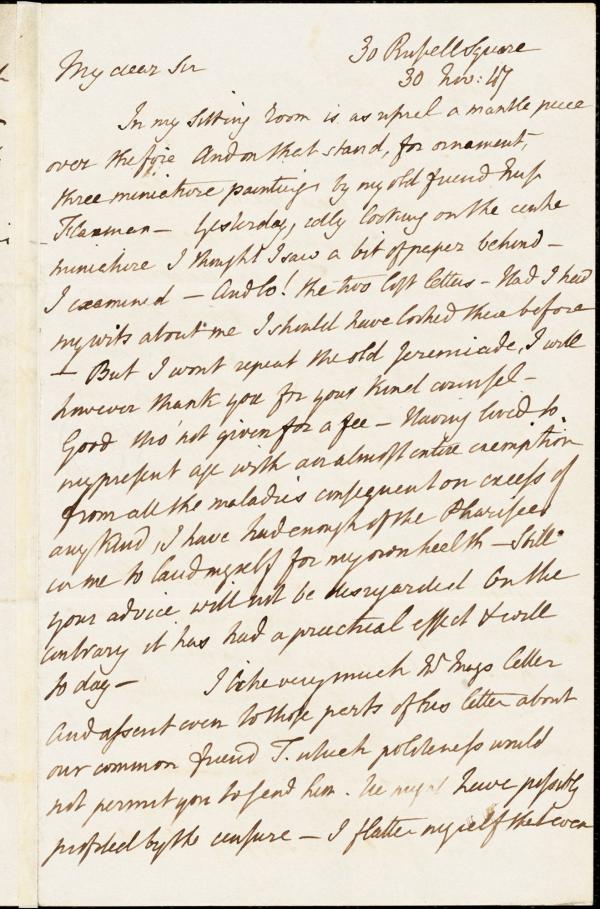 30 Russell Square
My dear Sir
30 Nov: 47
In my sitting room is as usual a mantle piece
over the fire And on that stand, for ornament,
three miniature paintings by my old friend
Flaxman — Yesterday, idly looking on the centre
miniature I thought I saw a bit of paper behind —
I examined — And lo! the two lost letters — Had I had
my wits about me I should have looked there before
— But I wont repeat the old Jeremiade, I will
however thank you for your kind counsel —
Good tho' not given for a fee — Having lived to
my present age with an almost entire exemption
from all the maladies consequent on excess of
any kind, I have had enough of the Pharisee
in me to laud myself for my own health — Still
your advice will not be disregarded On the
contrary it has had a practical effect & will
to day — I like very much Mr letter
And assent even to those parts of his letter about
our common friend T. which politeness would
not permit you to send him. He might have possibly
profited by the censure — I flatter myself that even